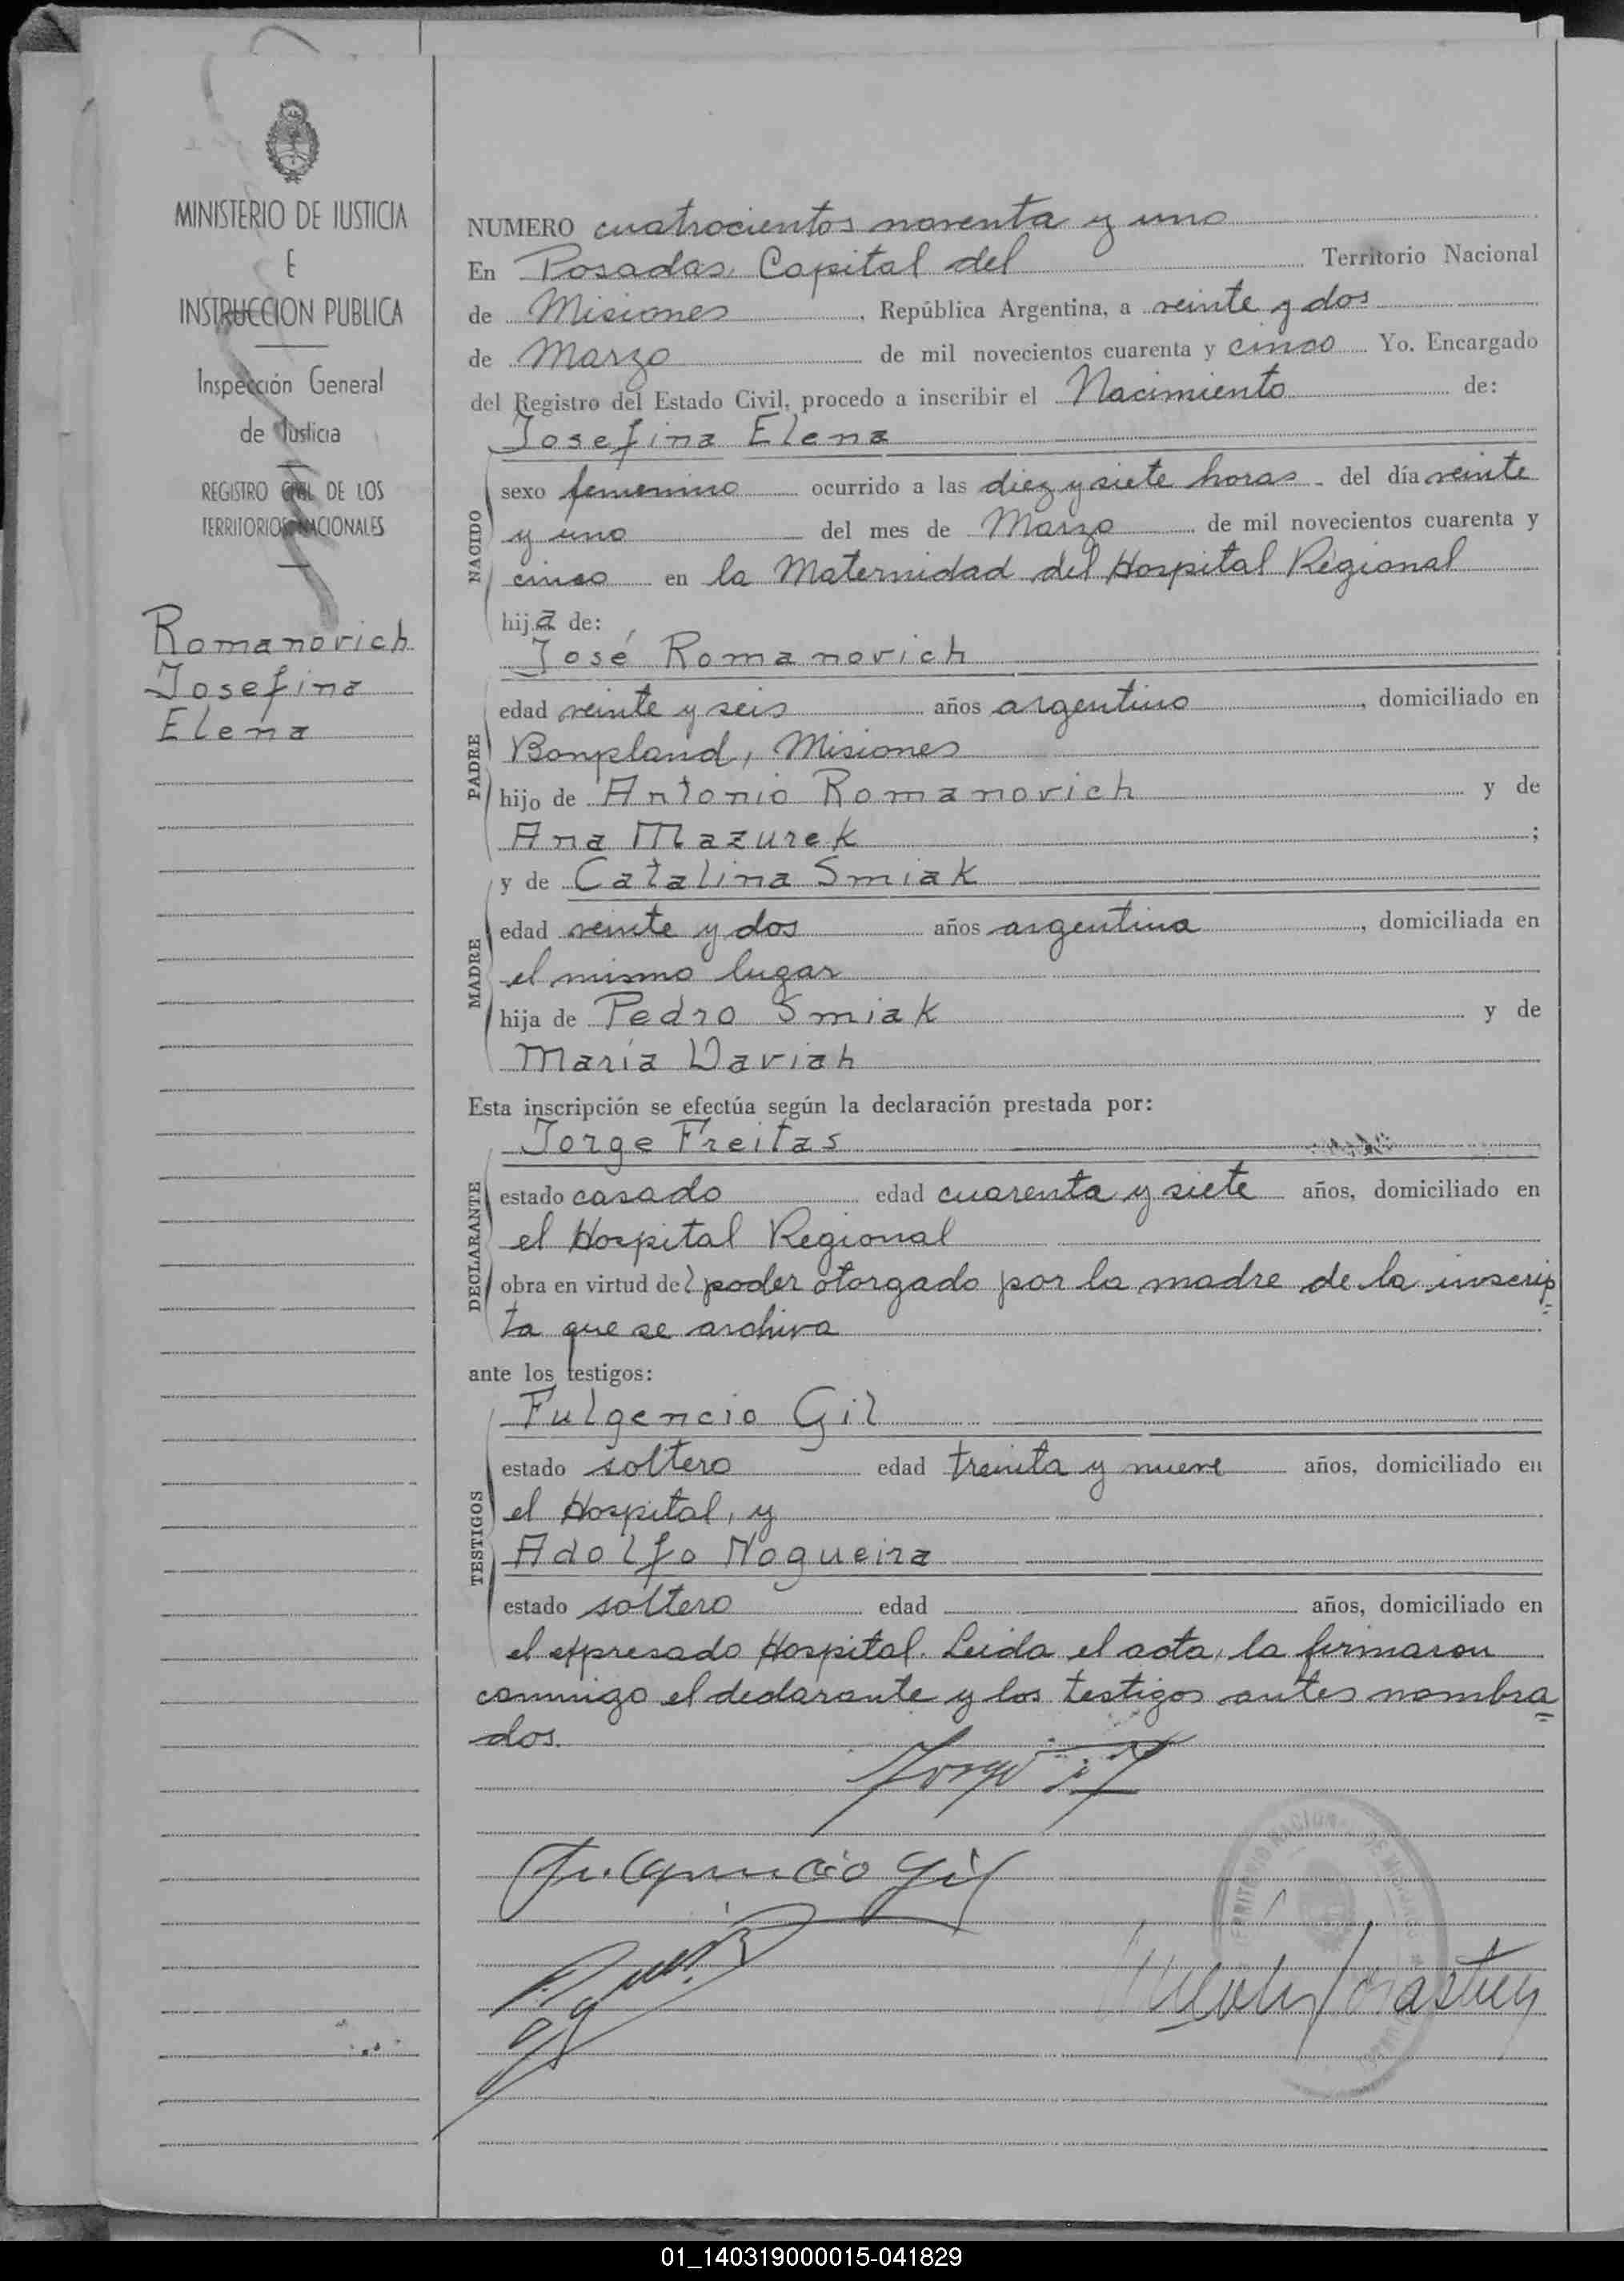 MINISTERIO DE JUSTICIA
E
INSTRUCCION PUBLICA
Inspección General
de Justicia
REGISTRO CIVIL DE LOS
TERRITORIOS NACIONALES
Romanovich
Josefina
Elena
NUMERO cuatrocientos noventa y uno
En Posadas, Capital del Territorio Nacional
de Misiones, República Argentina, a veinte y dos
de Marzo de mil novecientos cuarenta y cinco Yo. Encargado
del Registro del Estado Civil, procedo a inscribir el Nacimiento de:
Josefina Elena
NACIDO
sexo femenino ocurrido a las diez y siete horas - del día veinte
y uno del mes de Marzo de mil novecientos cuarenta y
cinco en la Maternidad del Hospital Regional
hija de:
José Romanovich
PADRE
edad veinte y seis años argentino, domiciliado en
Bonpland, Misiones
hijo de Antonio Romanovich y de
Ana Mazurek;
y de Catalina Smiak
MADRE
edad veinte y dos años argentina, domiciliada en
el mismo lugar
hija de Pedro Smiak y de
María Daviah
Esta inscripción se efectúa según la declaración prestada por:
Jorge Freitas
DECLARANTE
estado casado edad cuarenta y siete años, domiciliado en
el Hospital Regional
obra en virtud del poder otorgado por la madre de la inscrip=
ta que se archiva
ante los testigos:
Fulgencio Gil
TESTIGOS
estado soltero edad treinta y nueve años, domiciliado en
el Hospital, y
Adolfo Nogueira
estado soltero edad años, domiciliado en
el expresado Hospital. Leida el acta, la firmaron
conmigo el declarante y los testigos antes nombra=
dos.
Jorge
Fulgencio Gil
01_140319000015-041829